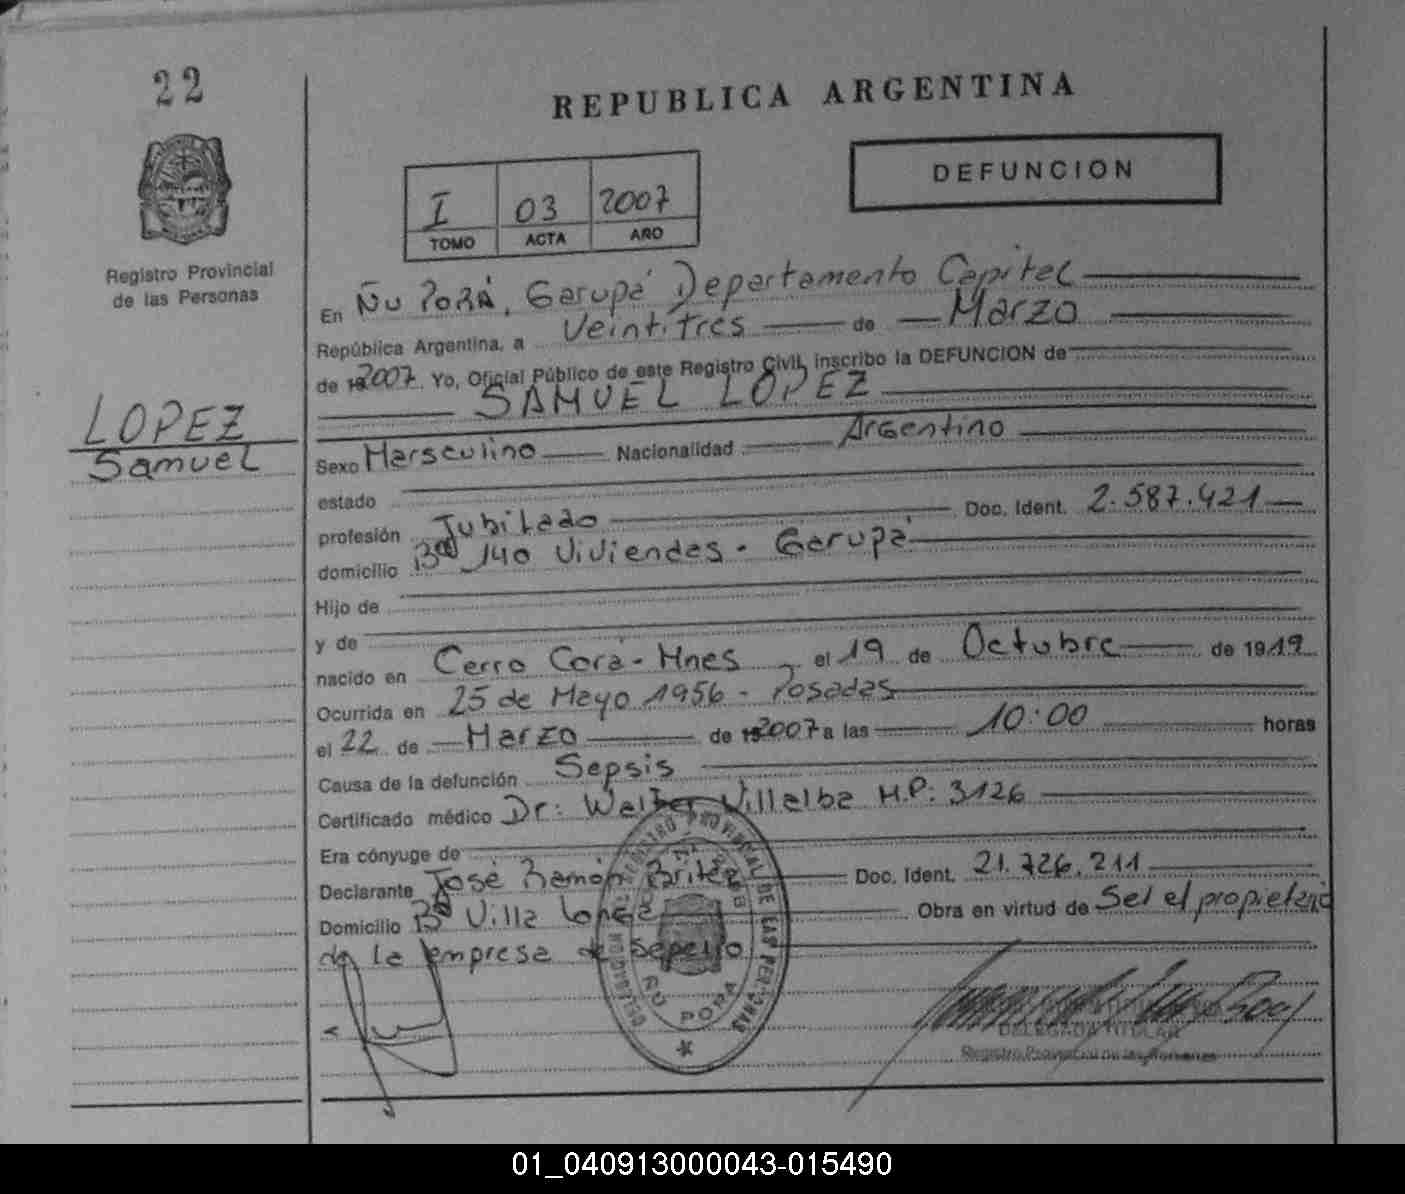 22
REPUBLICA ARGENTINA
DEFUNCION
I 03 2007
TOMO ACTA AÑO
Registro Provincial
de las Personas
En Ñu Porá, Garupá Departamento Capital
República Argentina, a Veintitres de Marzo
de 2007. Yo, Oficial Público de este Registro Civil, inscribo la DEFUNCION de
SAMUEL LOPEZ
LOPEZ
Samuel
Sexo Marsculino Nacionalidad Argentino
estado
profesión Jubilado Doc. Ident. 2.587.421
domicilio Bº 140 Viviendas - Garupá
Hijo de
y de
nacido en Cerro Corá - Mnes el 19 de Octubre de 1919
Ocurrida en 25 de Mayo 1956 - Posadas
el 22 de Marzo de 2007 a las 10:00 horas
Causa de la defunción Sepsis
Certificado médico Dr: Walter Villalba M.P: 3126
Era cónyuge de
Declarante José Ramón Britez Doc. Ident. 21.726.211
Domicilio Bº Villa Longa Obra en virtud de Ser el propietario
de la empresa de Sepelio
REGISTRO PROVINCIAL DE LAS PERSONAS
DELEGACION
ÑU PORA
DELEGADA TITULAR
Registro Provincial de las Personas
01_040913000043-015490